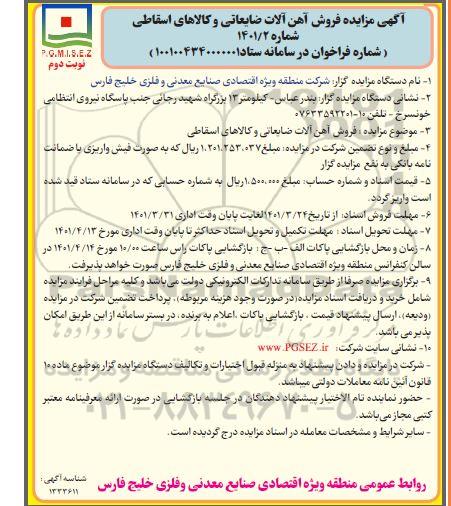 آگهی مزایده فروش آهن آلات ضایعاتی و کالاهای اسقاطی
شماره ۱۴۰۱/۲
( شماره فراخوان در سامانه ستاد۱۰۰۱۰۰۴۳۴۰۰۰۰۰۰۱)
P.G.M.I.S.E.Z
نوبت دوم
۱- نام دستگاه مزایده گزار: شرکت منطقه ویژه اقتصادی صنایع معدنی و فلزی خلیج فارس
۲- نشانی دستگاه مزایده گزار: بندرعباس- کیلومتر۱۳ بزرگراه شهید رجائی جنب پاسگاه نیروی انتظامی
خونسرخ - تلفن ۱۰-۰۷۶۳۳۵۹۲۲۰۱
۳- موضوع مزایده : فروش آهن آلات ضایعاتی و کالاهای اسقاطی
۴- مبلغ و نوع تضمین شرکت در مزایده: مبلغ۱.۲۰۱.۲۵۳.۰۳۷ریال که به صورت فیش واریزی یا ضمانت
نامه بانکی به نفع مزایده گزار
۵- قیمت اسناد و شماره حساب: مبلغ۱.۵۰۰.۰۰۰ریال به شماره حسابی که در سامانه ستاد قید شده
است واریز گردد.
۶- مهلت فروش اسناد: از تاریخ۱۴۰۱/۳/۲۴لغایت پایان وقت اداری ۱۴۰۱/۳/۳۱
۷- مهلت تحویل اسناد : مهلت تکمیل و تحویل اسناد حداکثر تا پایان وقت اداری مورخ ۱۴۰۱/۴/۱۳
۸- زمان و محل بازگشایی پاکات الف -ب -ج : بازگشایی پاکات راس ساعت ۱۰/۰۰ مورخ ۱۴۰۱/۴/۱۴ در
سالن کنفرانس منطقه ویژه اقتصادی صنایع معدنی و فلزی خلیج فارس صورت خواهد پذیرفت.
۹- برگزاری مزایده صرفا از طریق سامانه تدارکات الکترونیکی دولت می‌باشد و کلیه مراحل فرایند مزایده
شامل خرید و دریافت اسناد مزایده(در صورت وجود هزینه مربوطه)، پرداخت تضمین شرکت در مزایده
(ودیعه)، ارسال پیشنهاد قیمت ، بازگشایی پاکات ،اعلام به برنده ، در بستر سامانه از این طریق امکان
پذیر می باشد.
۱۰- نشانی سایت شرکت: www.PGSEZ.ir
- شرکت در مزایده و دادن پیشنهاد به منزله قبول اختیارات و تکالیف دستگاه مزایده گزار موضوع ماده ۱۰
قانون آئین نامه معاملات دولتی میباشد.
- حضور نماینده تام الاختیار پیشنهاد دهندگان در جلسه بازگشایی در صورت ارائه معرفینامه معتبر
کتبی مجاز می‌باشد.
- سایر شرایط و مشخصات معامله در اسناد مزایده درج گردیده است.
روابط عمومی منطقه ویژه اقتصادی صنایع معدنی وفلزی خلیج فارس
شناسه آگهی :
۱۳۳۳۶۱۱
۰۲۱-۸۸۳۴۹۶۷۰-۵